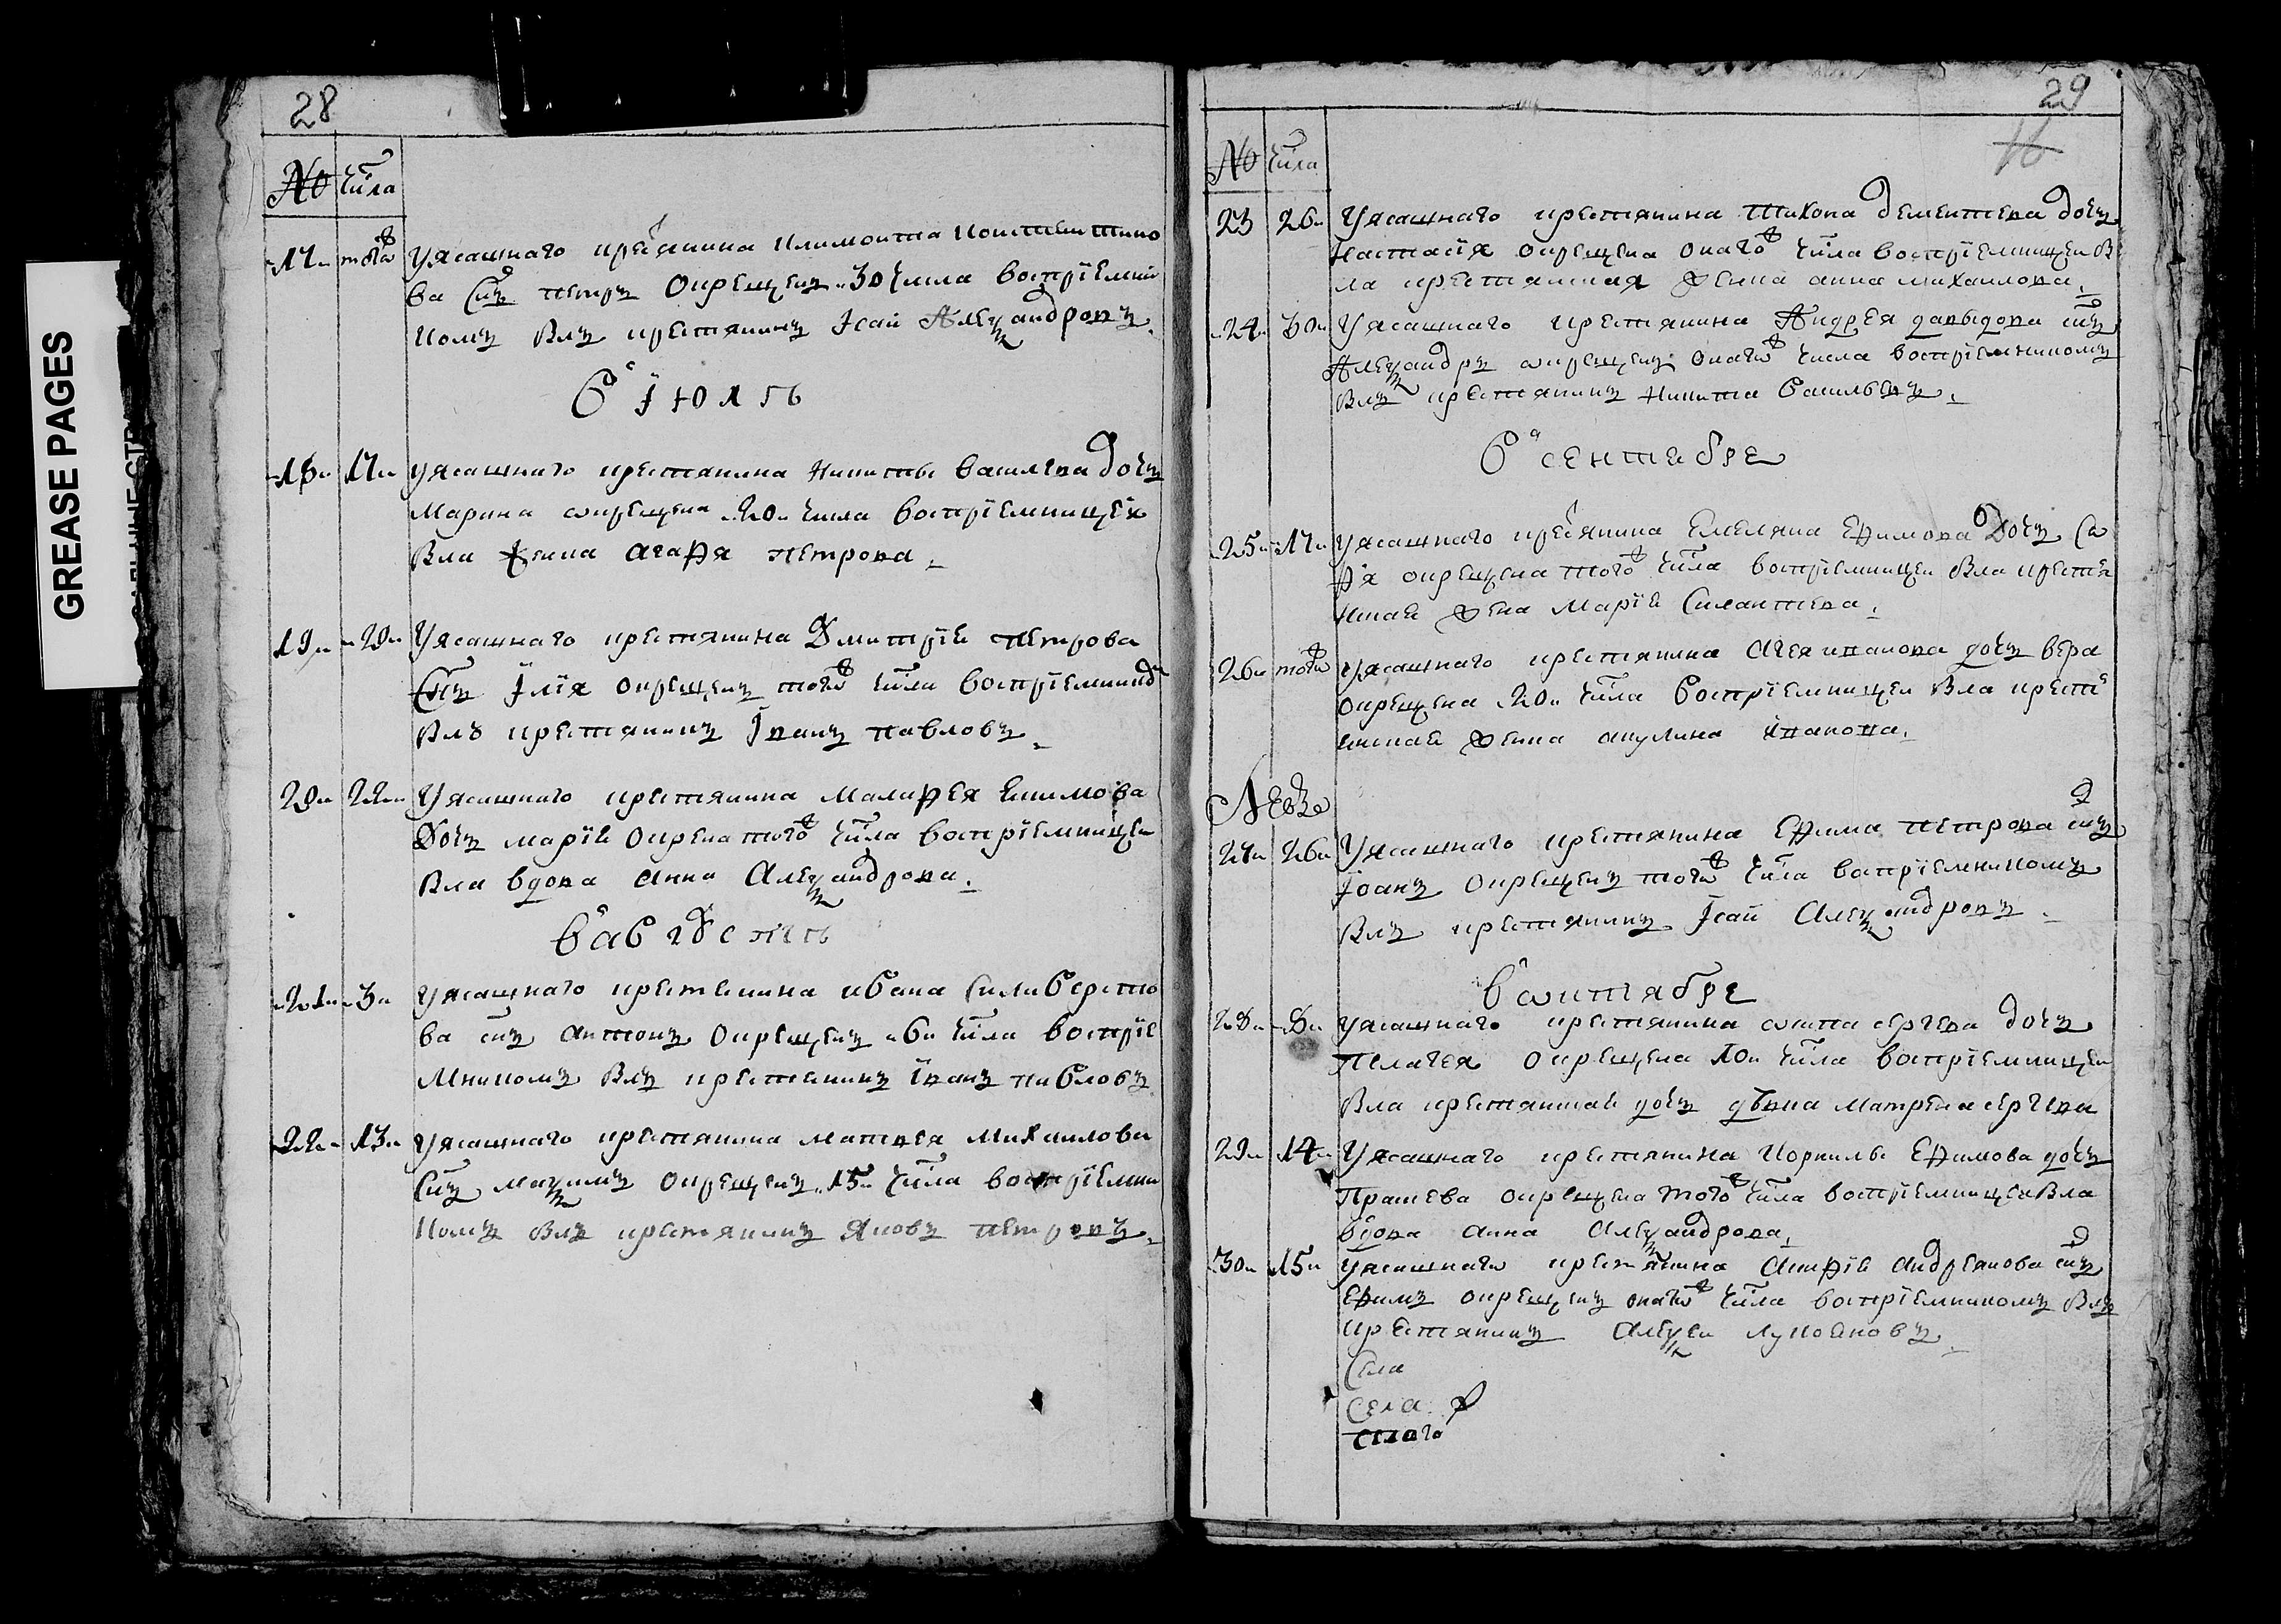 28
№ числа
17 того У ясашнаго крестянина Климонта Констентино
ва сынъ Петръ окрещенъ 30 числа восприемни
комъ былъ крестянинъ Iсаи Алеѯандровъ.
в iюлѣ
18 17 У ясашнаго крестянина Никиты Василева дочь
Марина окрещена 20 числа восприемницеи
была жена Агафя Петрова
19 20 У ясашнаго крестянина Дмитрiя Петрова
сынъ Iлiя окрещенъ того числа восприемнико
былъ крестянинъ Iванъ Павловъ
20 22 У ясашнаго крестянина Малафея Екимова
дочь Марiя окрена того числа восприемницеи
была вдова Анна Алеѯандрова.
в августе
21 3 У ясашнаго крестенина Ивана Силиверсто
ва сынъ Антонъ окрещенъ 6 числа восприе
мникомъ былъ крестенинъ Iванъ Павловъ
22 13 У ясашнаго крестянина Матвея Михаилова
сынъ Маѯимъ окрещенъ 15 числа восприемни
комъ былъ крестянинъ Яковъ Петровъ
29
16
№ числа
23 26 У ясашнаго крестянина Тихона Дементева дочь
Настасiя окрещена онаго числа восприемницеи бы
ла крестянская жена Анна Михаилова.
24 30 У ясашнаго крестянина Андрея Давыдова сынъ
Алеѯандръ окрещенъ онаго числа восприемникомъ
былъ крестянинъ Никита Василевъ.
в сентебре
25 17 У ясашнаго крестянина Емеляна Ефимова дочь Со
фiя окрещена того числа восприемницеи была крестя
нская жена Марiя Силантева.
26 того У ясашнаго крестянина Агея Иванова дочь Вера
окрещена 20 числа восприемницеи была крестя
нская жена Акулина Иванова.
27 26 У ясашнаго крестянина Ефима Петрова сынъ
Iоанъ окрещенъ того числа восприемникомъ
былъ крестянинъ Iсаи Алеѯандровъ
в октябре
28 8 У ясашнаго крестянина Сергева дочь
Пелагея окрещена 10 числа восприемницеи
была крестянская дочь девка Матрена Сергева
29 14 У ясашнаго крестянина Корнилы Ефимова дочь
Праскева окрещена того числа восприемницеи была
вдова Анна Алеѯандрова.
30 15 У ясашнаго крестянина Андреянова сынъ
Ефимъ окрещенъ онаго числа восприемникомъ былъ
крестянинъ Алеѯеи Лукояновъ
Села
Села
GREASE PAGES